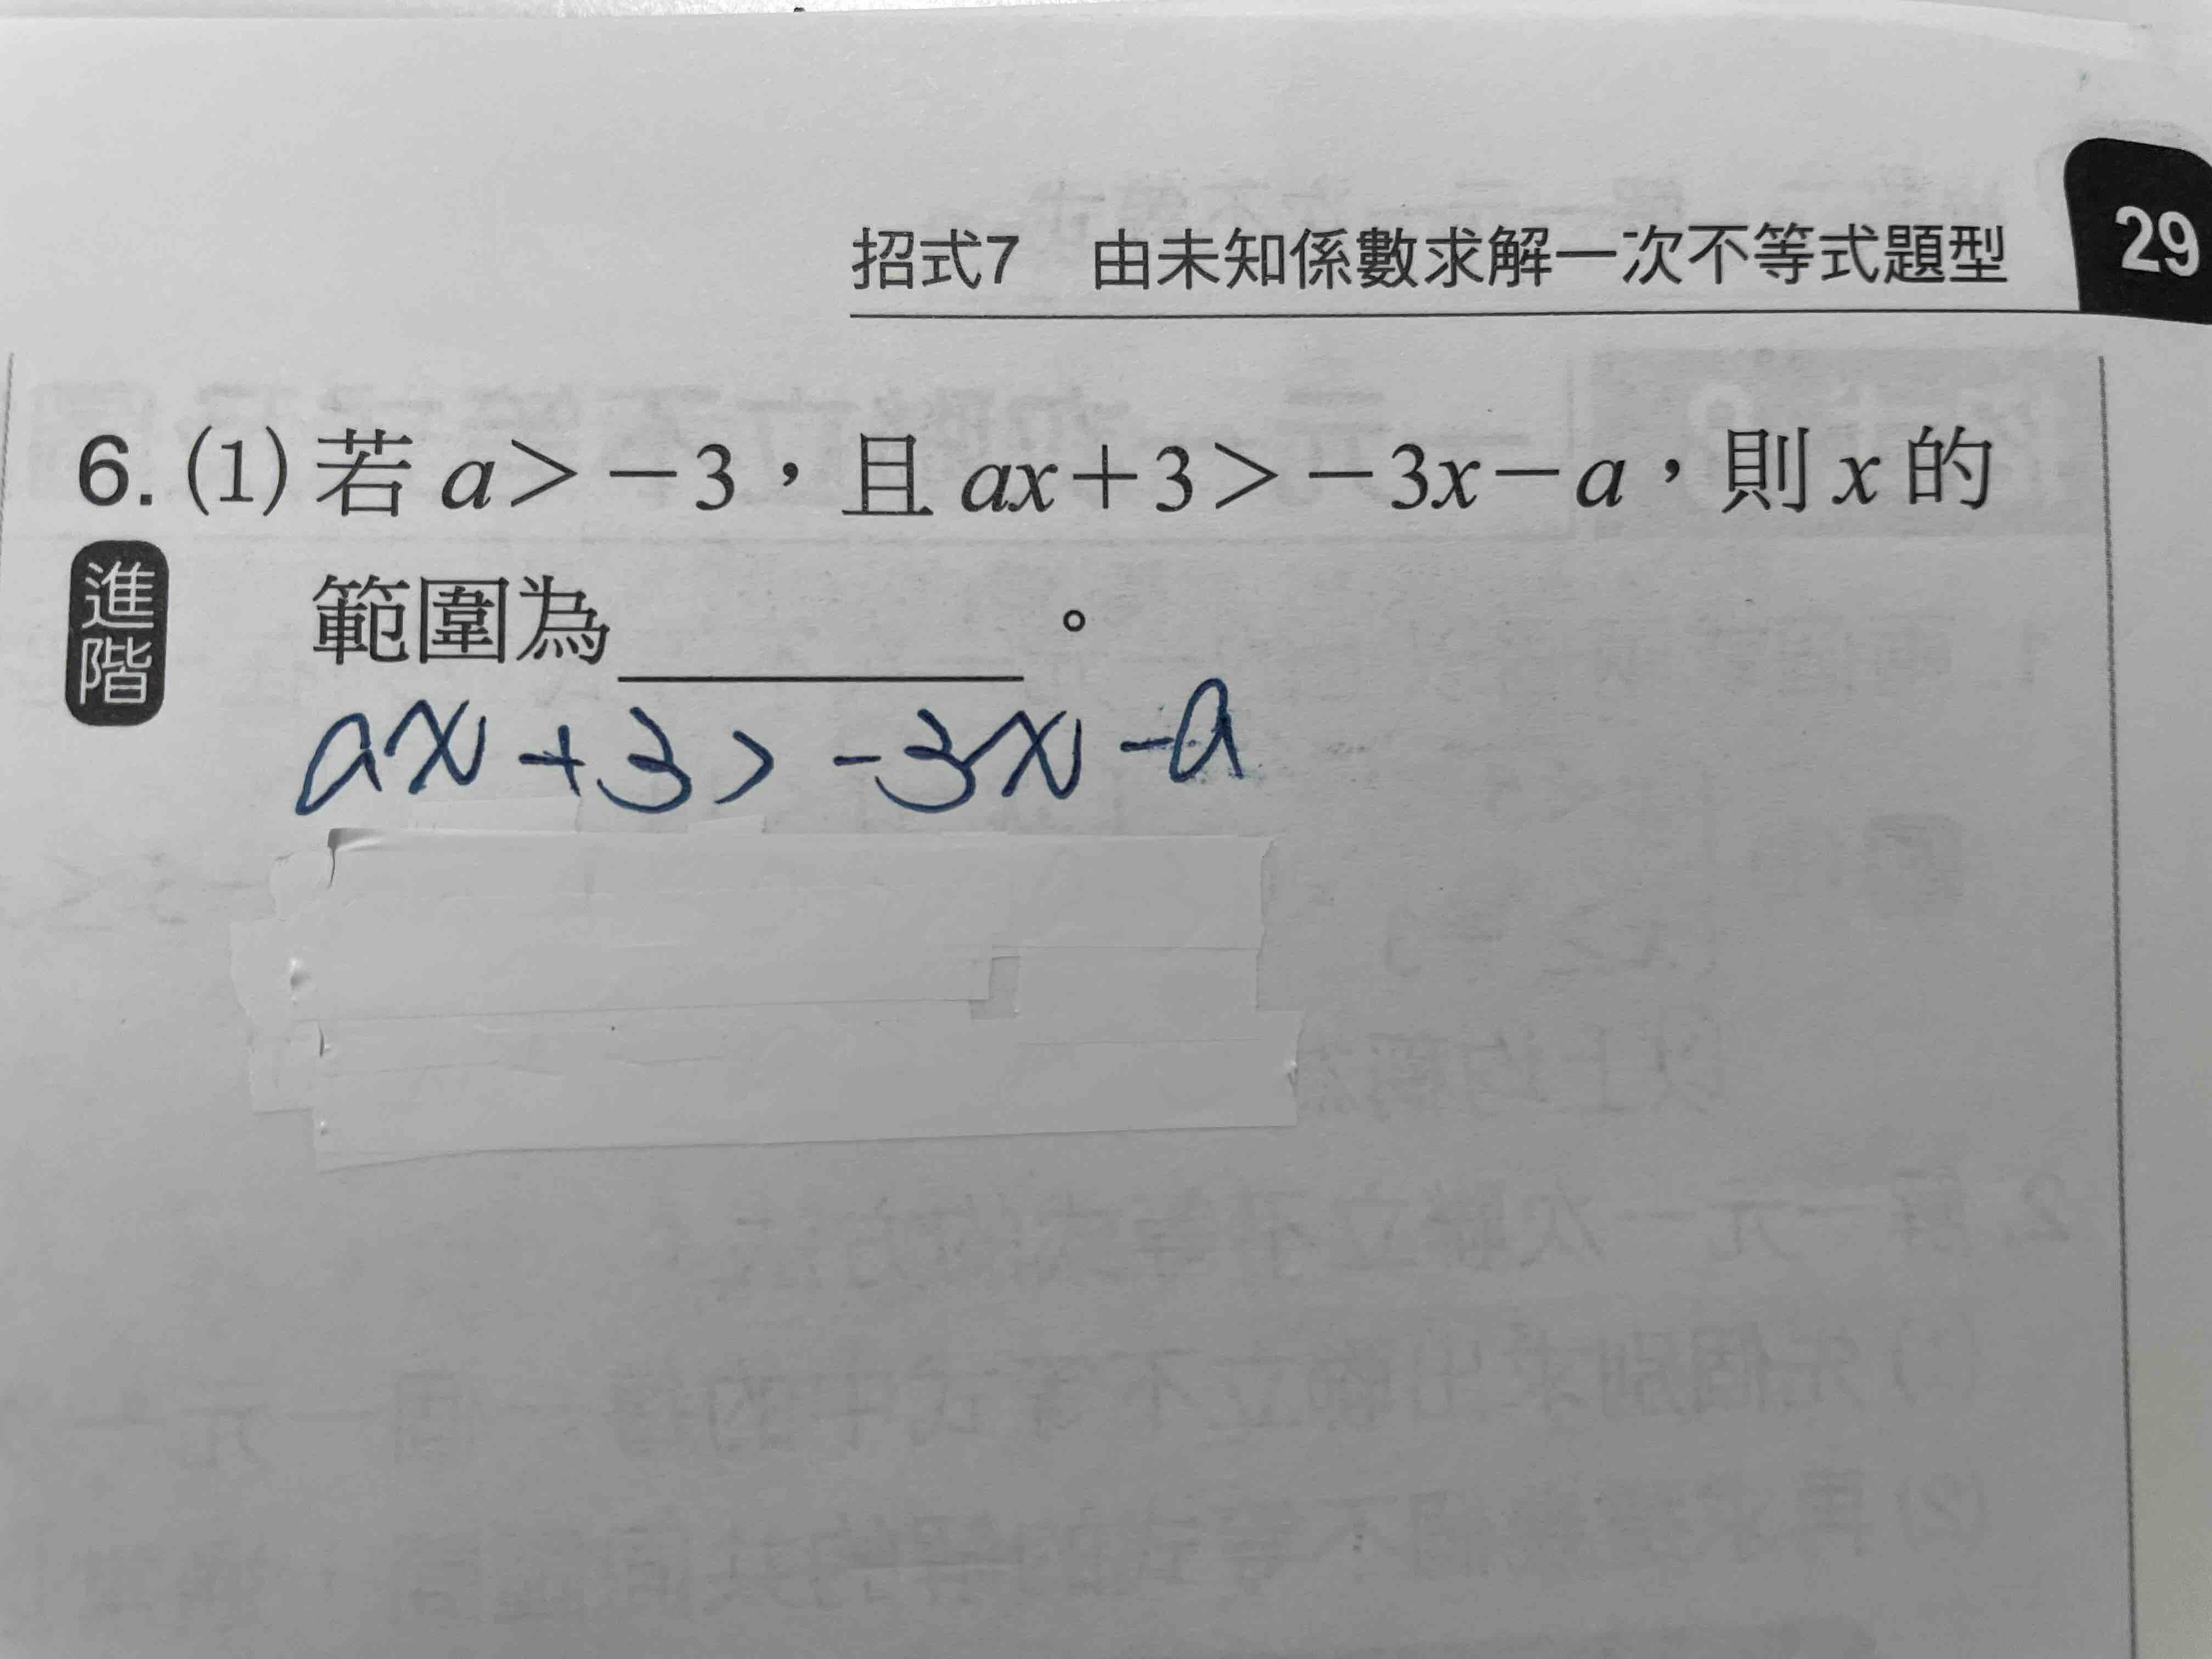 招式7 由未知係數求解一次不等式題型 29
6. (1) 若 a>-3，且 ax+3>-3x-a，則 x 的
進階 範圍為________。
ax+3>-3x-a